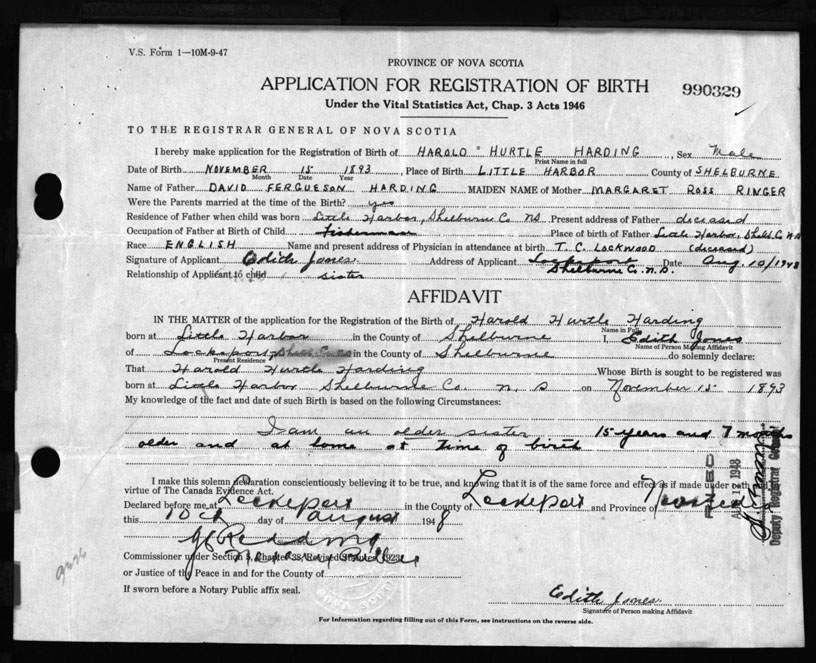 V.S. Form 1—10M-9-47
PROVINCE OF NOVA SCOTIA
APPLICATION FOR REGISTRATION OF BIRTH
990329
Under the Vital Statistics Act, Chap. 3 Acts 1946
TO THE REGISTRAR GENERAL OF NOVA SCOTIA
I hereby make application for the Registration of Birth of HAROLD HURTLE HARDING, Sex Male
Print Name in full
Date of Birth NOVEMBER 15 1893, Place of Birth LITTLE HARBOR County of SHELBURNE
Month Date Year
Name of Father DAVID FERGUESON HARDING MAIDEN NAME of Mother MARGARET ROSS RINGER
Were the Parents married at the time of the Birth? yes
Residence of Father when child was born Little Harbor, Shelburne Co NS Present address of Father deceased
Occupation of Father at Birth of Child fisherman Place of birth of Father Little Harbor, Shelb. Co N.S
Race ENGLISH Name and present address of Physician in attendance at birth T. C. LOCKWOOD (deceased)
Signature of Applicant Edith Jones Address of Applicant Lockeport Date Aug. 10/1948
Shelburne Co. N.S.
Relationship of Applicant to child sister
AFFIDAVIT
IN THE MATTER of the application for the Registration of the Birth of Harold Hurtle Harding
Name in Full
born at Little Harbor in the County of Shelburne I, Edith Jones
Name of Person Making Affidavit
of Lockeport, Shelb. Co. NS in the County of Shelburne do solemnly declare:
Present Residence
That Harold Hurtle Harding Whose Birth is sought to be registered was
born at Little Harbor Shelburne Co. N. S on November 15 1893
My knowledge of the fact and date of such Birth is based on the following Circumstances:
I am an older sister 15 years and 7 months
older and at home at time of birth
I make this solemn declaration conscientiously believing it to be true, and knowing that it is of the same force and effect as if made under oath
virtue of The Canada Evidence Act.
Declared before me at Lockeport in the County of Lockeport and Province of
this 10th day of August 1948
Commissioner under Section Chapter 38, Revised Statutes, 1923
or Justice of the Peace in and for the County of
If sworn before a Notary Public affix seal.
NOVA SCOTIA
AUG 12 1948
Deputy Registrar General
Edith Jones
Signature of Person making Affidavit
For Information regarding filling out of this Form, see instructions on the reverse side.